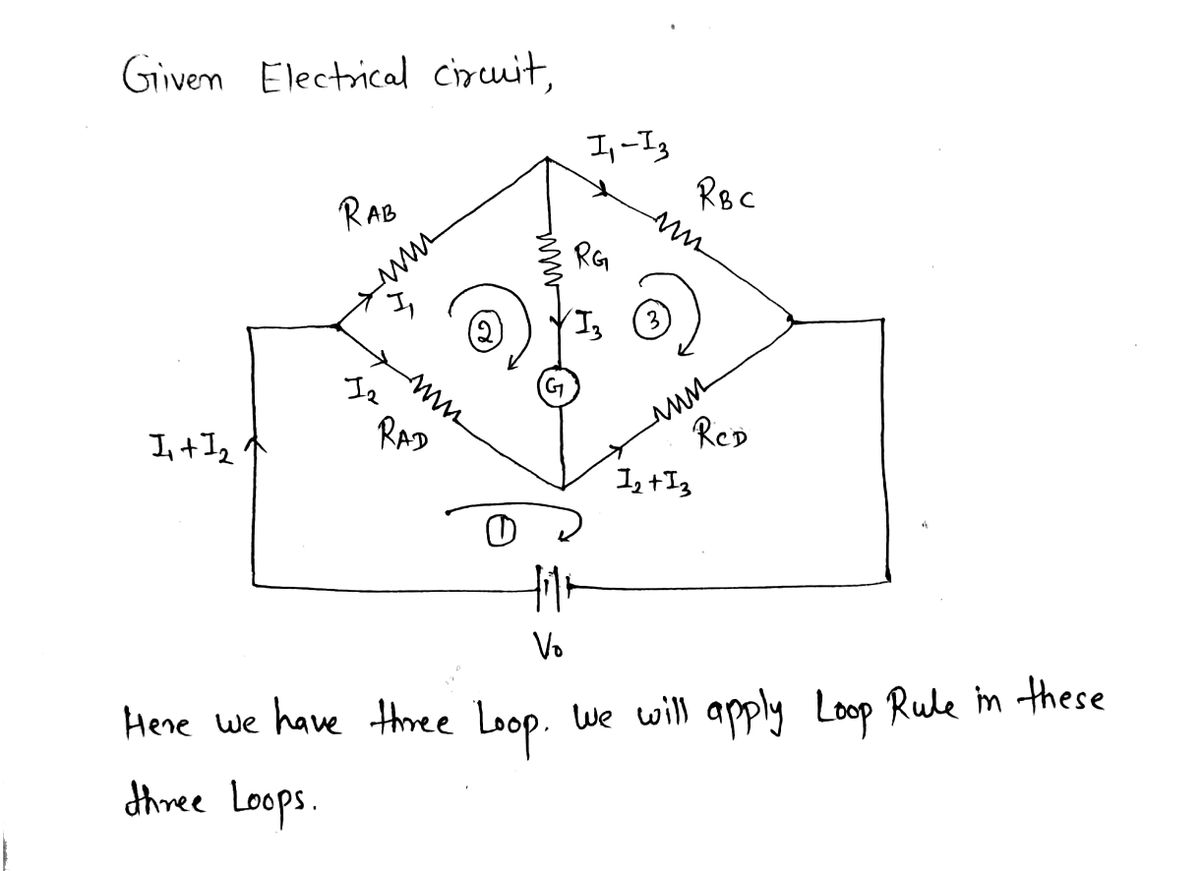 Given Electrical circuit,
I₁-I₃
RAB
RBC
RG
I₁
2
I₃
3
I₂
G
RAD
RCD
I₁+I₂
I₂+I₃
1
V₀
Here we have three Loop. We will apply Loop Rule in these
three Loops.